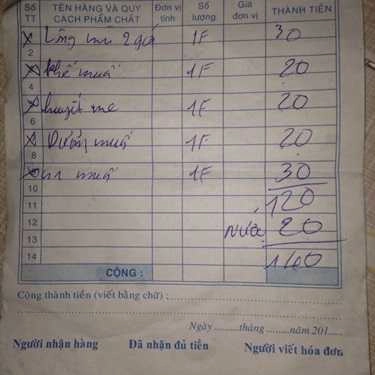 Số TT TÊN HÀNG VÀ QUY CÁCH PHẨM CHẤT Đơn vị tính Số lượng Giá đơn vị THÀNH TIỀN
1F 30
2
muối 1F 20
4
me 1F 20
6
muối 1F 20
8
muối 1F 30
10
11 120
12 Nước 20
13
14 140
CỘNG :
Cộng thành tiền (viết bằng chữ) :
Ngày ........ tháng ........ năm 201....
Người nhận hàng Đã nhận đủ tiền Người viết hóa đơn